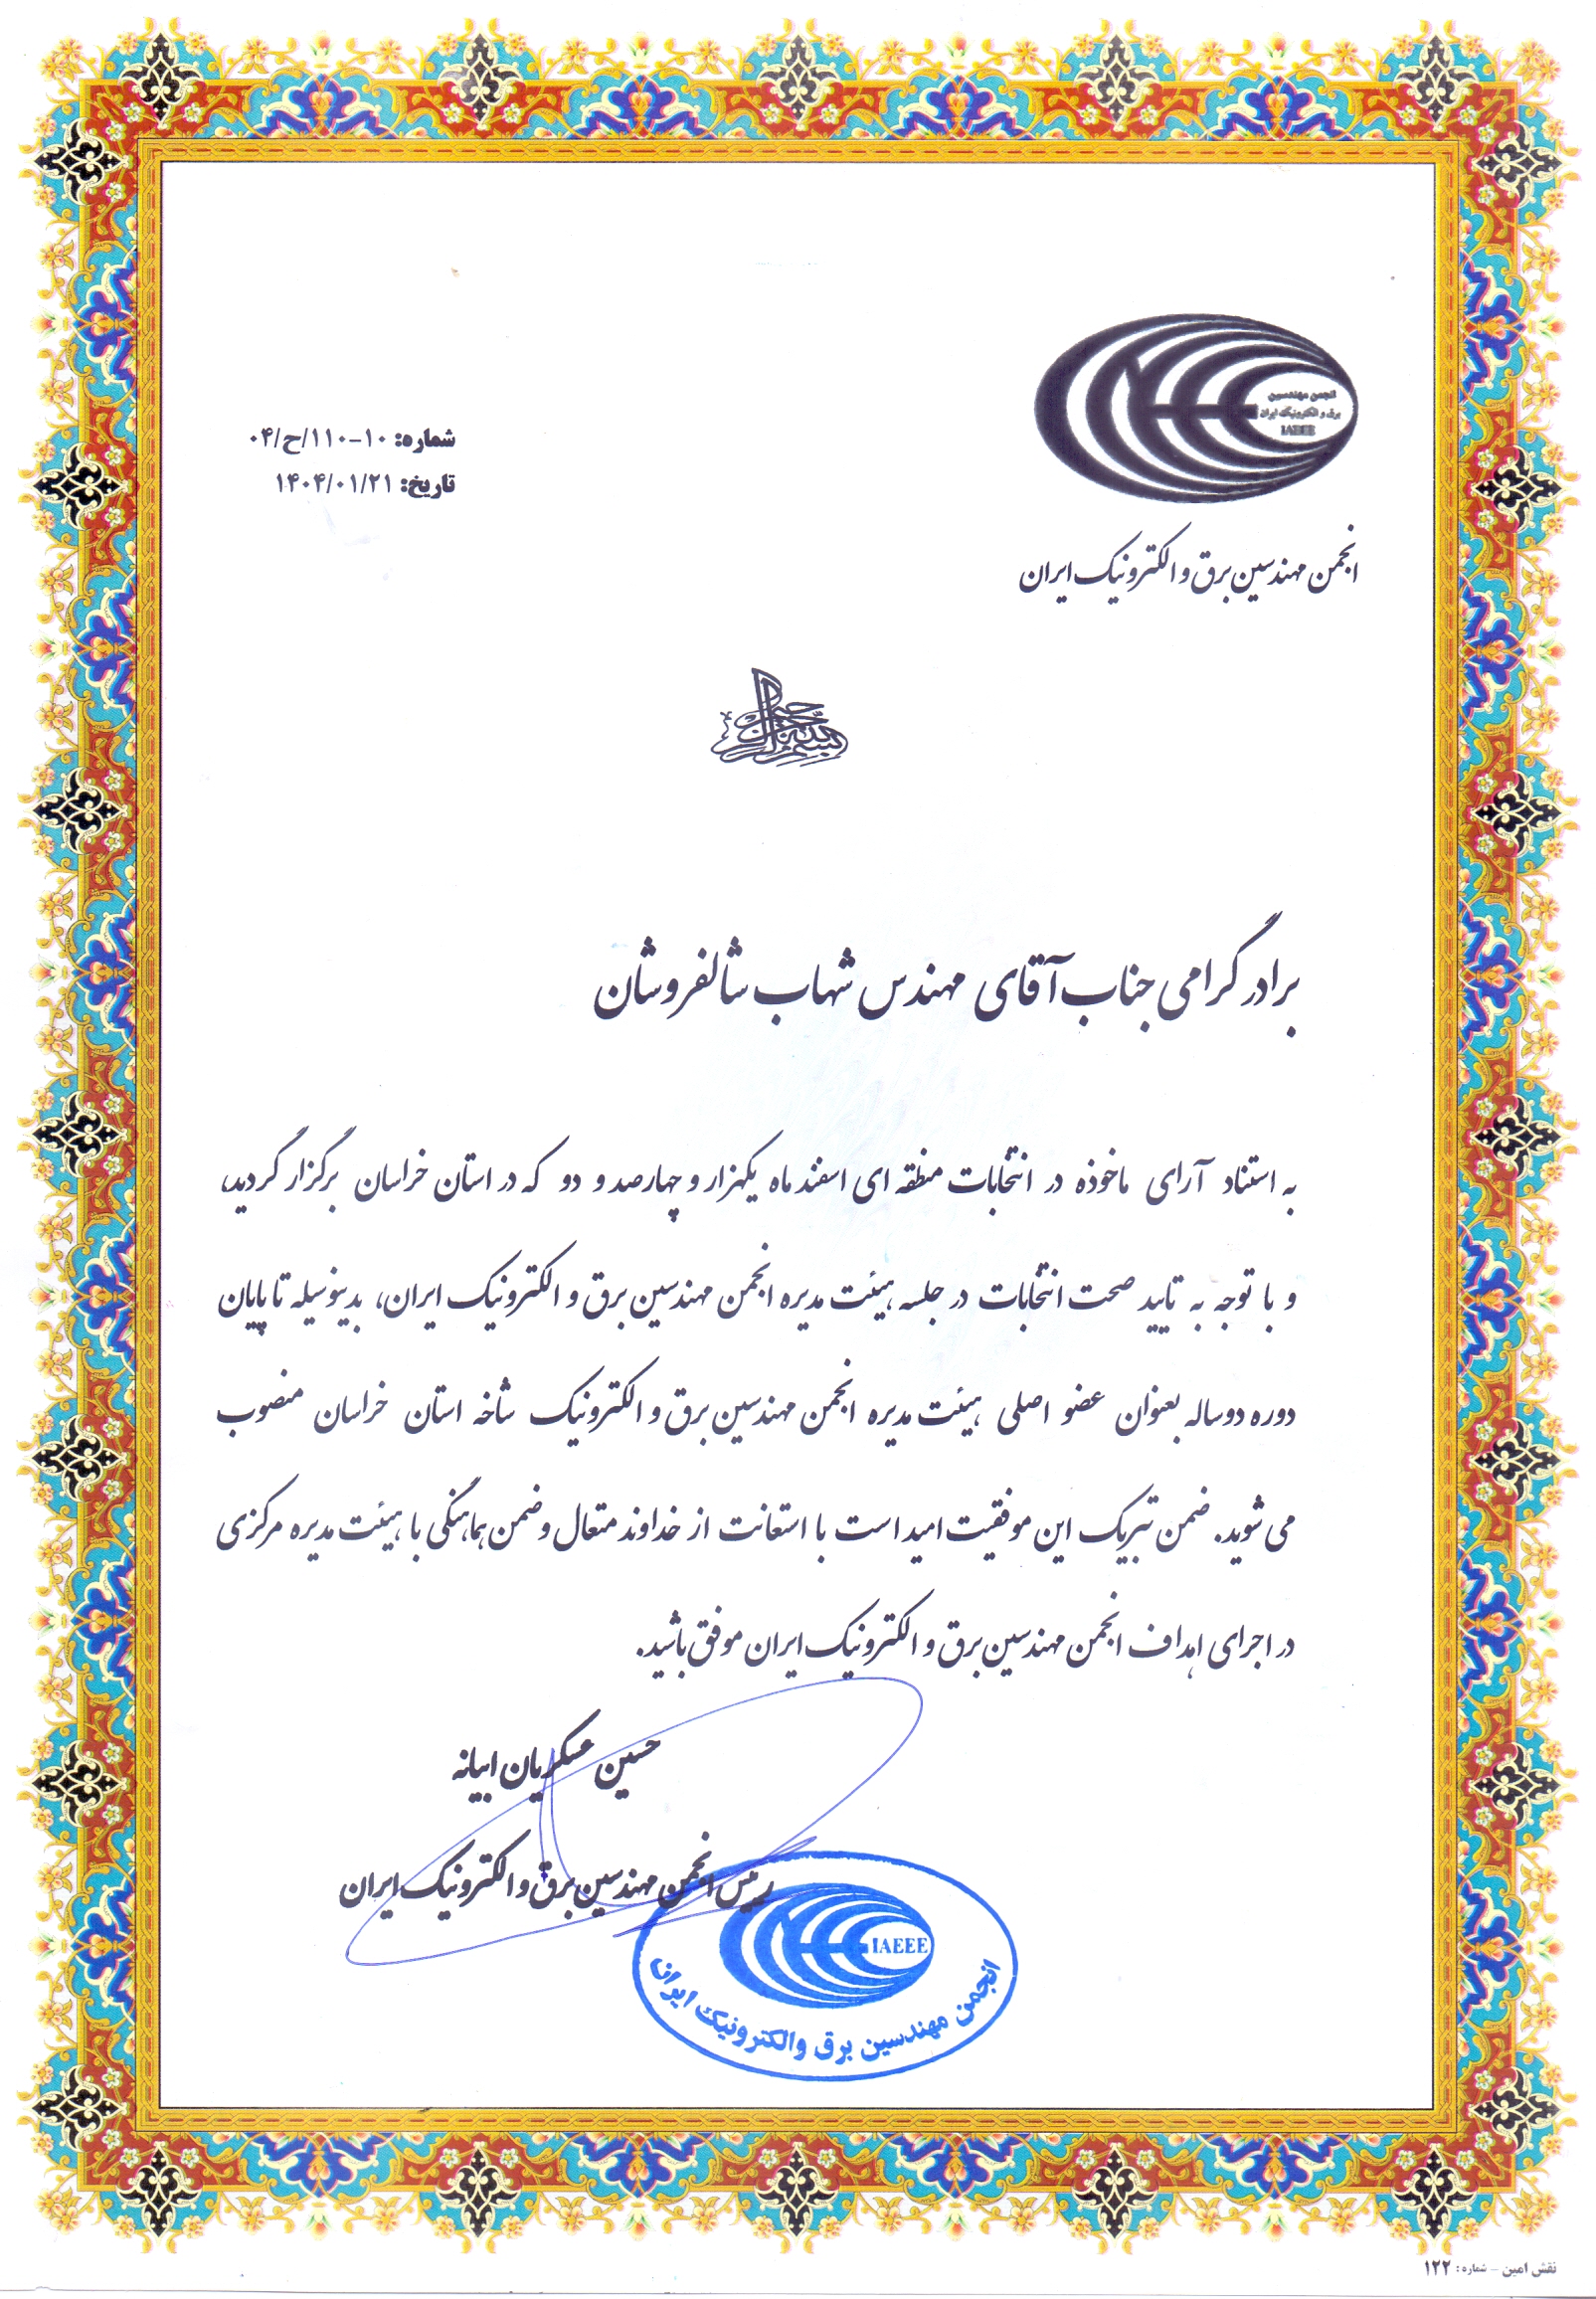 انجمن مهندسین
برق و الکترونیک ایران
IAEEE
شماره: ۱۰-۱۱۰/ح/۰۴
تاریخ: ۱۴۰۴/۰۱/۲۱
انجمن مهندسین برق و الکترونیک ایران
بسم الله الرحمن الرحیم
برادر گرامی جناب آقای مهندس شهاب شالفروشان
به استناد آرای ماخوذه در انتخابات منطقه ای اسفند ماه یکهزار و چهارصد و دو که در استان خراسان برگزار گردید،
و با توجه به تایید صحت انتخابات در جلسه هیئت مدیره انجمن مهندسین برق و الکترونیک ایران، بدینوسیله تا پایان
دوره دوساله بعنوان عضو اصلی هیئت مدیره انجمن مهندسین برق و الکترونیک شاخه استان خراسان منصوب
می شوید. ضمن تبریک این موفقیت امید است با استعانت از خداوند متعال و ضمن هماهنگی با هیئت مدیره مرکزی
در اجرای اهداف انجمن مهندسین برق و الکترونیک ایران موفق باشید.
حسین عسکریان ابیانه
رییس انجمن مهندسین برق و الکترونیک ایران
IAEEE
انجمن مهندسین برق والکترونیک ایران
نقش امین - شماره: ۱۲۲